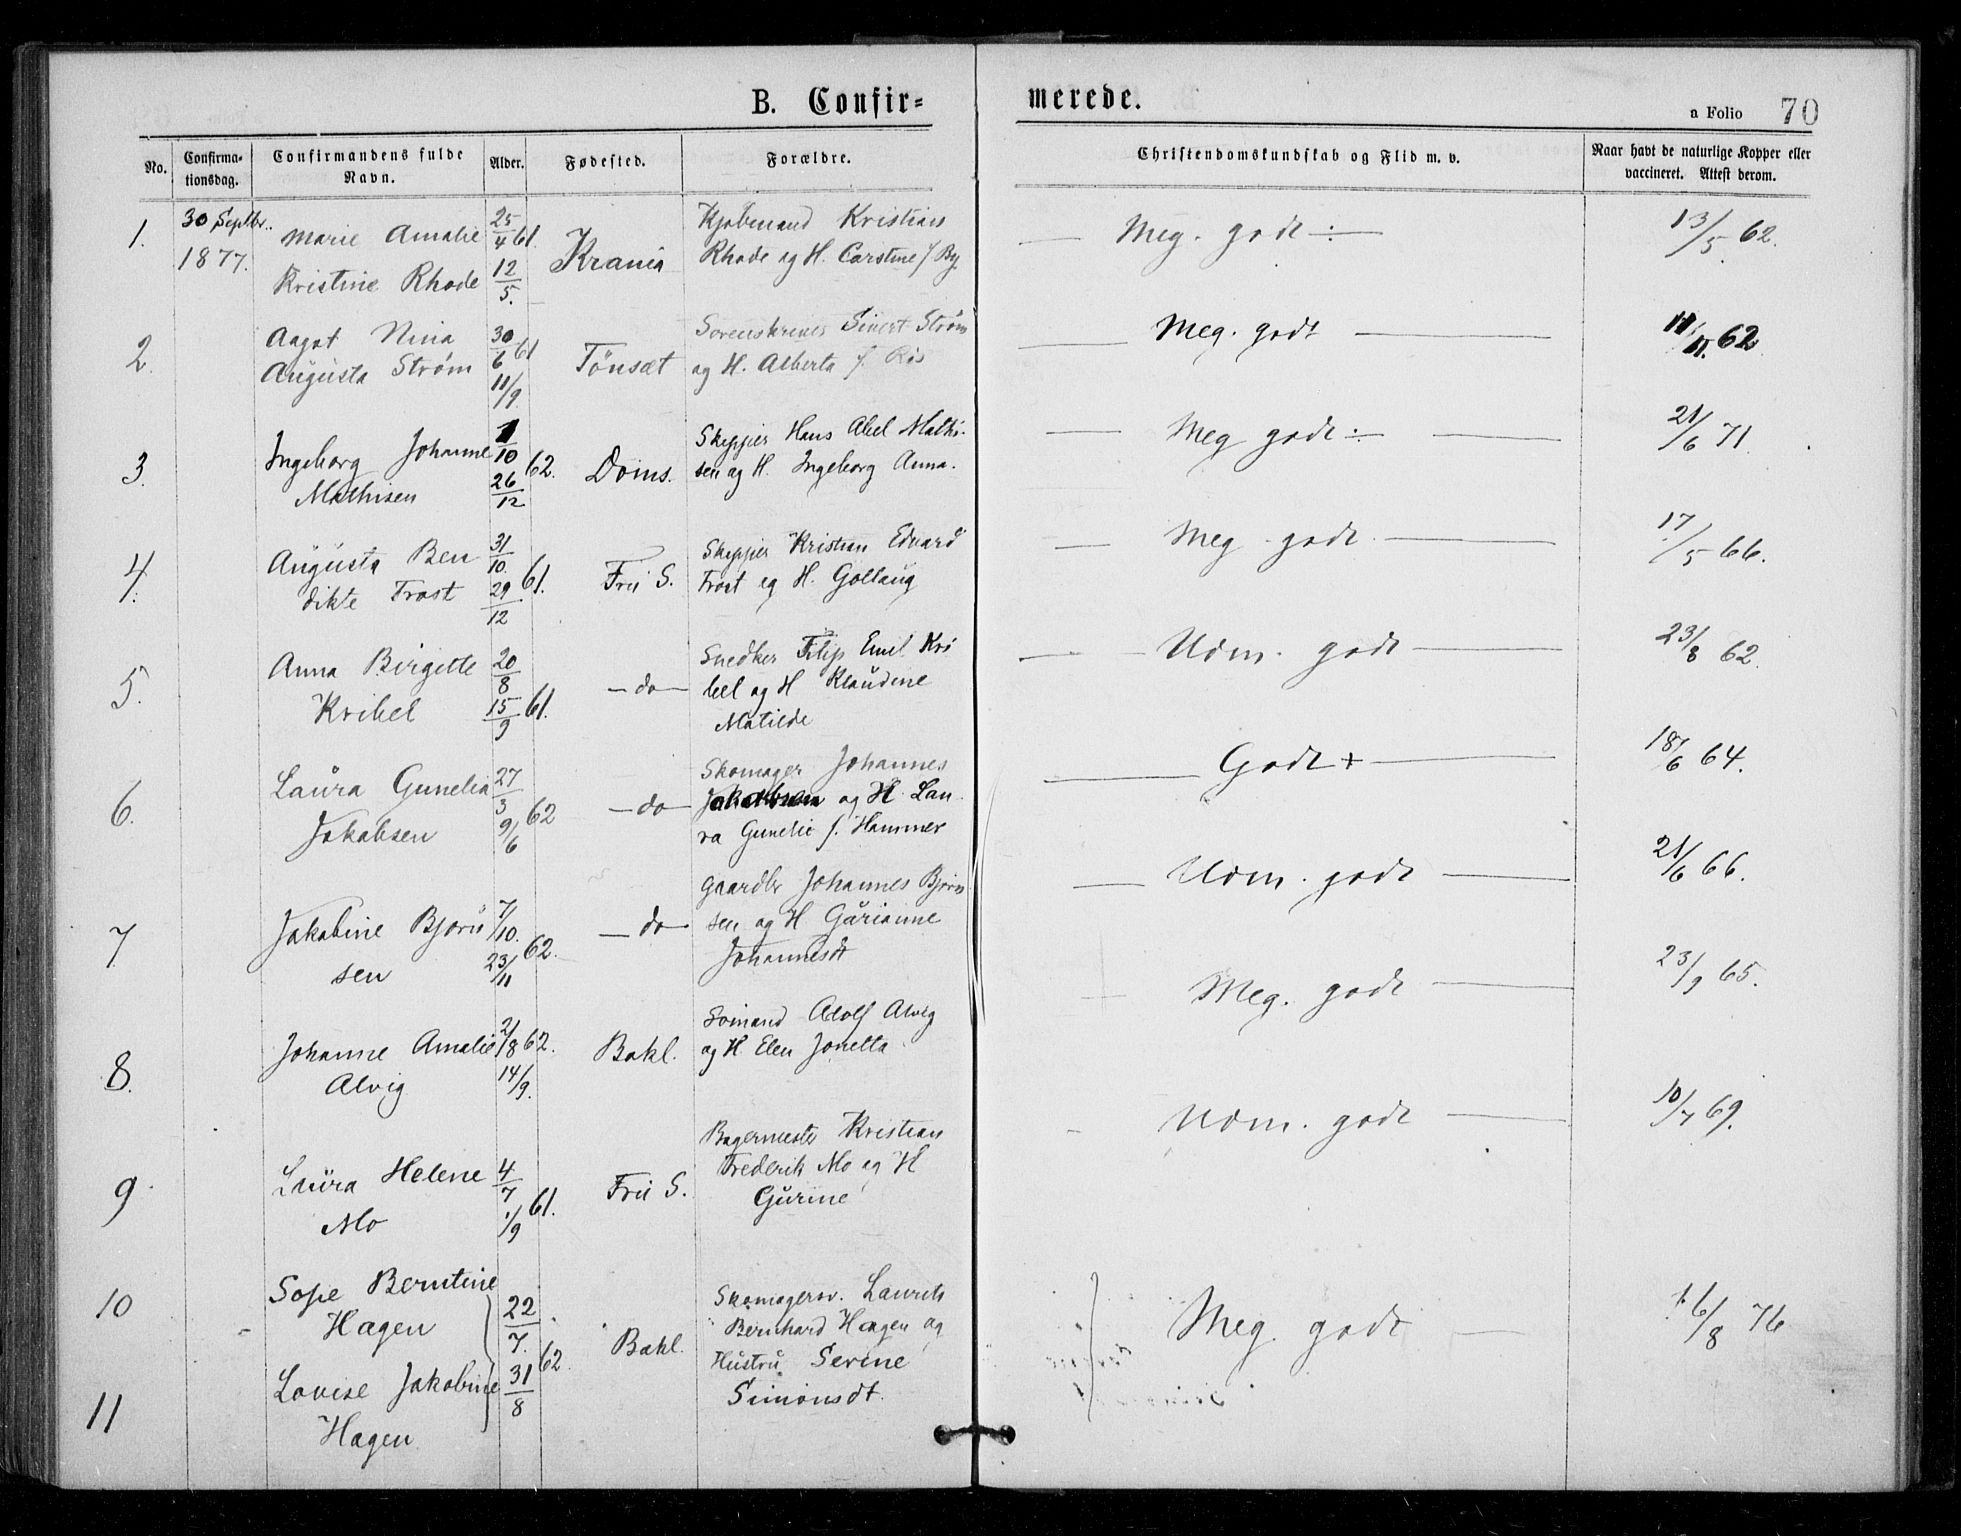 B. Confir=
merede.
a Folio 70
No.
Confirma-
tionsdag.
Confirmandens fulde
Navn.
Alder.
Fødested.
Forældre.
Christendomskundskab og Flid m. v.
Naar havt de naturlige Kopper eller
vaccineret. Attest derom.
1.
30 Septbr.
1877.
Marie Amalie
Kristine Rhode
25/4 61.
12/5.
Krania
Kjøbmand Kristian
Rhode og H. Carstine f By
Meg. godt ÷
13/5 62.
2.
Aagot Nina
Augusta Strøm
30/6 61
11/9
Tönsæt
Sorenskriver Sivert Strøm
og H. Alberta f. Riis
Meg. godt
11/11. 62
3.
Ingeborg Johanne
Mathisen
1/10 62.
26/12
Doms.
Skipper Hans Abel Mathi-
sen og H. Ingeborg Anna.
Meg godt ÷
21/6 71.
4.
Augusta Ben
dikte Frost
31/10. 61.
29/12
Fru S.
Skipper Kristian Edvard
Frost og H. Gollaug
Meg. godt
17/5 66.
5.
Anna Birgitte
Kribel
20/8
15/9 61.
—do—
Snedker Filip Emil Kri
bel og H Klaudine
Matilde
Udm. godt
23/8 62.
6.
Laura Gunelia
Jakobsen
27/3 62
9/6
—do—
Skomager Johannes
Jakobsen og H. Lau-
ra Gunelie f. Hammer
Godt +
18/6 64.
7.
Jakobine Bjørn
sen
7/10. 62.
23/11
—do—
Gaardbr Johannes Bjørn
sen og H Gurianne
Johannesdt
Udm. godt
21/6 66.
8.
Johanne Amalie
Alvig
2/8 62.
14/9.
Bakl.
Sømand Adolf Alvig
og H. Elen Jonetta
Meg. godt
23/9 65.
9.
Laura Helene
Mo
4/7 61.
1/9
Fru S.
Bagermester Kristian
Frederik Mo og H
Gurine
Udm. godt
10/7 69.
10
Sofie Berntine
Hagen
22/7. 62.
Bakl.
Skomagersv. Laurits
Bernhard Hagen og
Hustru Serine
Simonsdt.
Meg. godt
16/8 76
11
Lovise Jakobine
Hagen
31/8